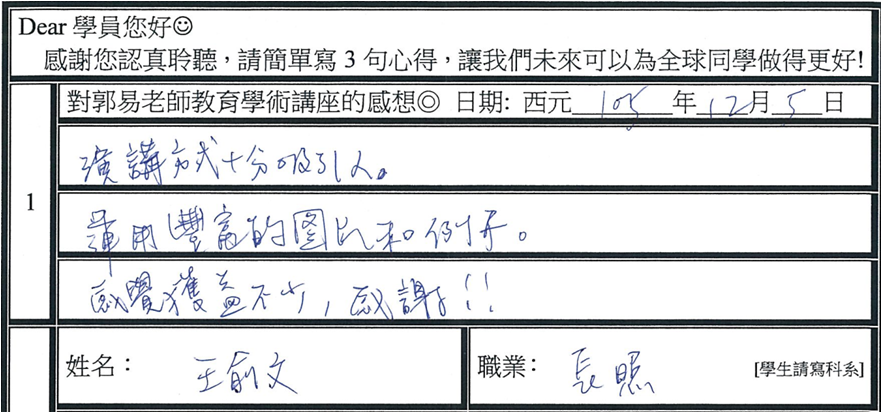 Dear 學員您好☺
感謝您認真聆聽，請簡單寫 3 句心得，讓我們未來可以為全球同學做得更好!
對郭易老師教育學術講座的感想◎ 日期: 西元 105 年 12 月 5 日
1
演講方式十分吸引人。
運用豐富的圖片和例子。
感覺獲益不少，感謝!!
姓名： 王俞文
職業： 長照 [學生請寫科系]